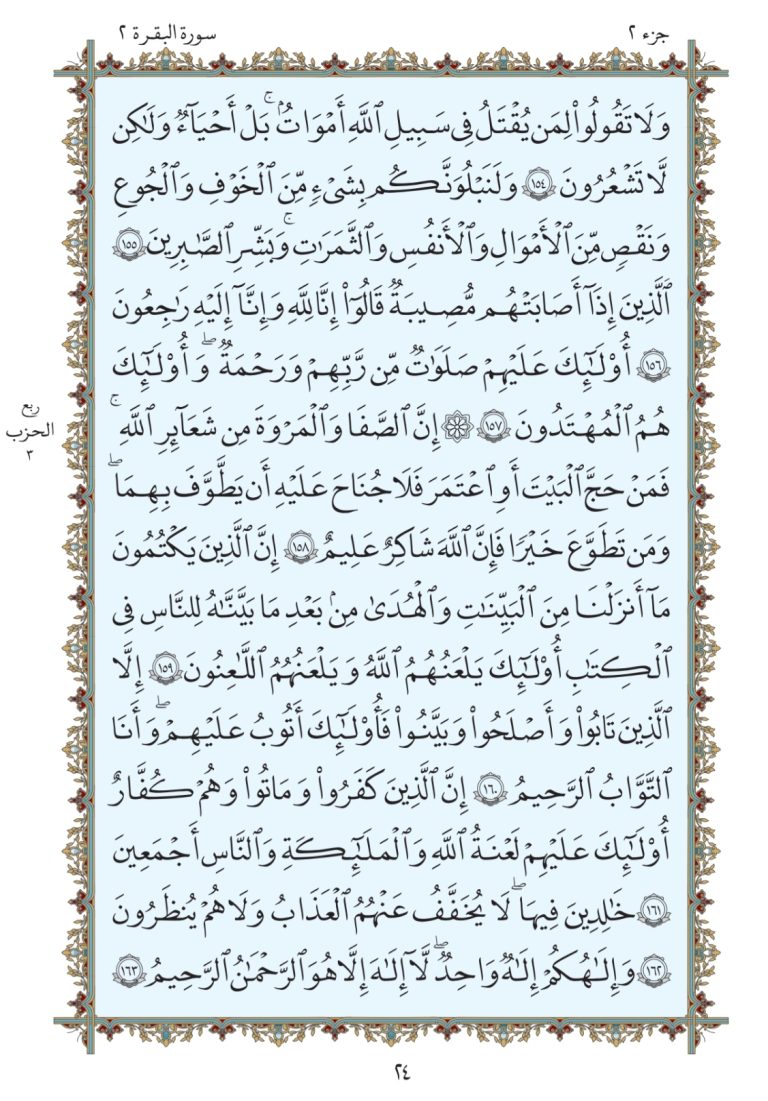 جزء ٢
سورة البقرة ٢
وَلَا تَقُولُوا۟ لِمَن يُقْتَلُ فِى سَبِيلِ ٱللَّهِ أَمْوَٰتٌۢ ۚ بَلْ أَحْيَآءٌ وَلَـٰكِن
لَّا تَشْعُرُونَ ١٥٤ وَلَنَبْلُوَنَّكُم بِشَىْءٍ مِّنَ ٱلْخَوْفِ وَٱلْجُوعِ
وَنَقْصٍ مِّنَ ٱلْأَمْوَالِ وَٱلْأَنفُسِ وَٱلثَّمَرَٰتِ ۗ وَبَشِّرِ ٱلصَّـٰبِرِينَ ١٥٥
ٱلَّذِينَ إِذَآ أَصَابَتْهُم مُّصِيبَةٌ قَالُوٓا۟ إِنَّا لِلَّهِ وَإِنَّآ إِلَيْهِ رَٰجِعُونَ
١٥٦ أُو۟لَـٰٓئِكَ عَلَيْهِمْ صَلَوَٰتٌ مِّن رَّبِّهِمْ وَرَحْمَةٌ ۖ وَأُو۟لَـٰٓئِكَ
هُمُ ٱلْمُهْتَدُونَ ١٥٧ ۞ إِنَّ ٱلصَّفَا وَٱلْمَرْوَةَ مِن شَعَآئِرِ ٱللَّهِ ۚ
ربع
الحزب
٣
فَمَنْ حَجَّ ٱلْبَيْتَ أَوِ ٱعْتَمَرَ فَلَا جُنَاحَ عَلَيْهِ أَن يَطَّوَّفَ بِهِمَا ۖ
وَمَن تَطَوَّعَ خَيْرًا فَإِنَّ ٱللَّهَ شَاكِرٌ عَلِيمٌ ١٥٨ إِنَّ ٱلَّذِينَ يَكْتُمُونَ
مَآ أَنزَلْنَا مِنَ ٱلْبَيِّنَـٰتِ وَٱلْهُدَىٰ مِنۢ بَعْدِ مَا بَيَّنَّـٰهُ لِلنَّاسِ فِى
ٱلْكِتَـٰبِ أُو۟لَـٰٓئِكَ يَلْعَنُهُمُ ٱللَّهُ وَيَلْعَنُهُمُ ٱللَّـٰعِنُونَ ١٥٩ إِلَّا
ٱلَّذِينَ تَابُوا۟ وَأَصْلَحُوا۟ وَبَيَّنُوا۟ فَأُو۟لَـٰٓئِكَ أَتُوبُ عَلَيْهِمْ ۖ وَأَنَا
ٱلتَّوَّابُ ٱلرَّحِيمُ ١٦٠ إِنَّ ٱلَّذِينَ كَفَرُوا۟ وَمَاتُوا۟ وَهُمْ كُفَّارٌ
أُو۟لَـٰٓئِكَ عَلَيْهِمْ لَعْنَةُ ٱللَّهِ وَٱلْمَلَـٰٓئِكَةِ وَٱلنَّاسِ أَجْمَعِينَ
١٦١ خَـٰلِدِينَ فِيهَا ۖ لَا يُخَفَّفُ عَنْهُمُ ٱلْعَذَابُ وَلَا هُمْ يُنظَرُونَ
١٦٢ وَإِلَـٰهُكُمْ إِلَـٰهٌ وَٰحِدٌ ۖ لَّآ إِلَـٰهَ إِلَّا هُوَ ٱلرَّحْمَـٰنُ ٱلرَّحِيمُ ١٦٣
٢٤